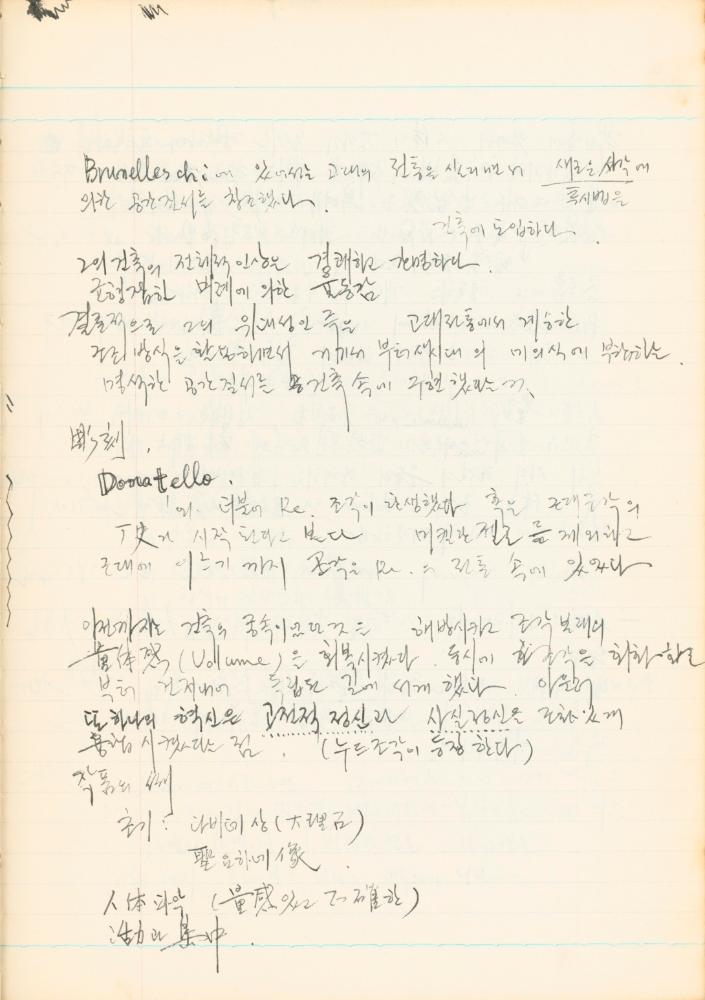 Brunelleschi에 있어서는 고대의 전통을 살리면서 새로운 시각에
투시법을
의한 공간질서를 창조했다.
건축에 도입하다.
그의 건축의 전체적 인상은 경쾌하고 간명하다.
균형잡힌 비례에 의한
결론적으로 그의 위대성인 즉은 고대전통에서 계승한
방식을 하면서 거기서부터 새시대의 미의식에 부합하는
명석한 공간질서를 건축 속에 구현했다는 것.
彫刻.
Donatello.
더불어 Re. 조각이 탄생했다 혹은 근대조각의
시작된다고 본다 미켈란젤로를 제외하고
근대에 이르기까지 조각은 Re.의 전통 속에 있었다
이전까지는 건축의 종속이었던 것을 해방시키고 조각 본래의
量体 (Volume)을 회복시켰다. 동시에 조각은 회화
부터 독립된 길에 서게 했다. 아울러
또하나의 혁신은 고전적 정신과 사실정신을 조화있게
융합시켰다는 점. (누드조각이 등장한다)
작품의 예
초기: 다비데상(大理石)
聖요하네像.
人体파악 (量感있고 正確한)
活力과 集中.